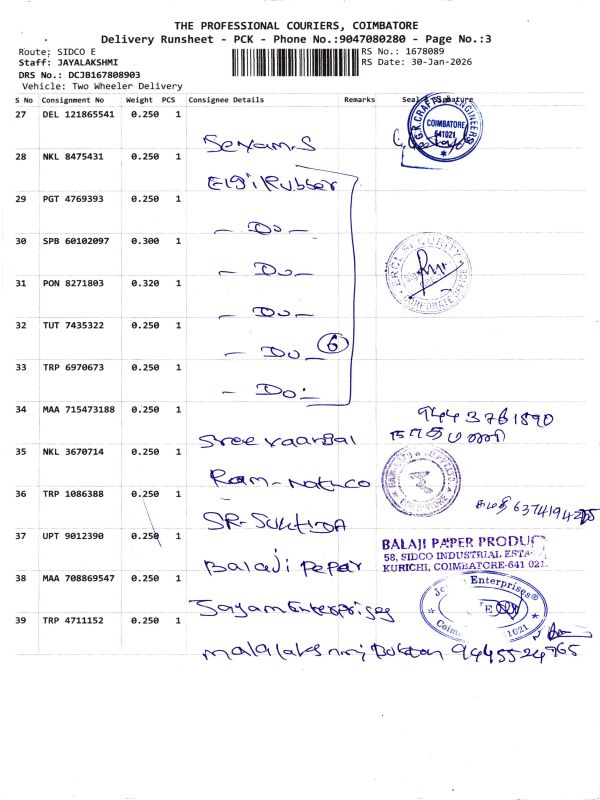 THE PROFESSIONAL COURIERS, COIMBATORE
Delivery Runsheet - PCK - Phone No.:9047080280 - Page No.:3
Route; SIDCO E
RS No.: 1678089
Staff: JAYALAKSHMI
RS Date: 30-Jan-2026
DRS No.: DCJB167808903
Vehicle: Two Wheeler Delivery
S No Consignment No Weight PCS Consignee Details Remarks Seal & Signature
27 DEL 121865541 0.250 1
COIMBATORE
641021
28 NKL 8475431 0.250 1
Elgi Rubber
29 PGT 4769393 0.250 1
- Do -
30 SPB 60102097 0.300 1
- Do -
SECURITY
CORPORATE OFFICE
31 PON 8271803 0.320 1
- Do -
32 TUT 7435322 0.250 1
- Do - 6
33 TRP 6970673 0.250 1
- Do -
34 MAA 715473188 0.250 1
9443761890
Sree
35 NKL 3670714 0.250 1
Ram-
36 TRP 1086388 0.250 1
SR-
37 UPT 9012390 0.250 1
BALAJI PAPER PRODUC
58, SIDCO INDUSTRIAL ESTA
KURICHI, COIMBATORE-641 021.
Balaji Peper
38 MAA 708869547 0.250 1
Enterprises
Jayam Enterprises
39 TRP 4711152 0.250 1
1021
9445524765